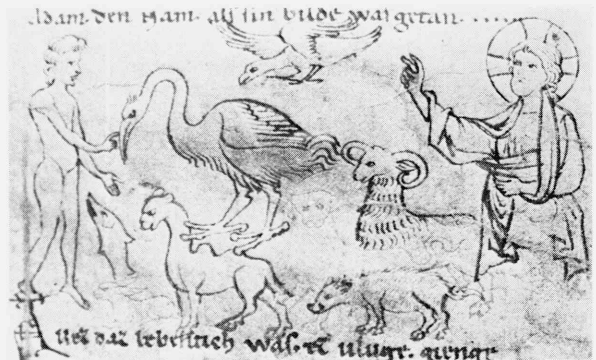 Adam. den Nam. als sin bilde was getan.
daz lebentich was. er vluge. gienge